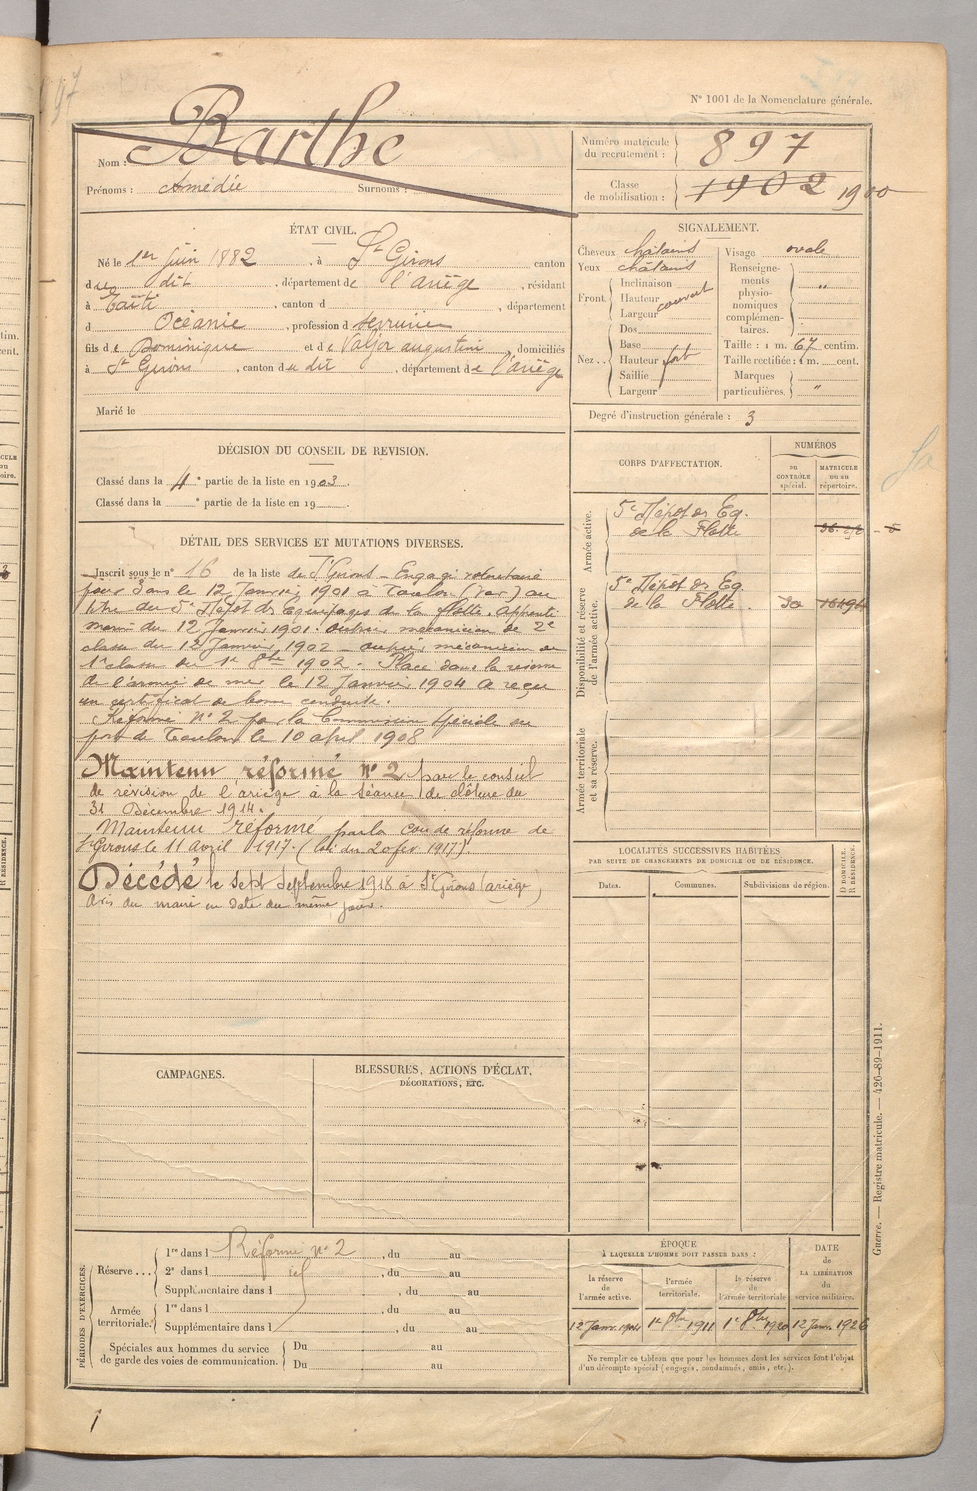 N° 1001 de la Nomenclature générale.
Nom : Barthe
Prénoms : Amédée Surnoms :
Numéro matricule du recrutement : 897
Classe de mobilisation : 1902 1900
ÉTAT CIVIL.
Né le 1er juin 1882, à St Girons canton
du dit, département de l'Ariège, résidant
à Taïti, canton d , département
d Océanie, profession d serrurier
fils de Dominique et de Valjor augustine, domiciliés
à St Girons, canton du dit, département de l'ariège
Marié le
SIGNALEMENT.
Cheveux châtains
Yeux châtains
Front Inclinaison
Hauteur couvert
Largeur
Nez.. Dos
Base
Hauteur fort
Saillie
Largeur
Visage ovale
Renseignements physionomiques complémentaires. "
Taille : 1 m. 67 centim.
Taille rectifiée : 1 m. cent.
Marques particulières. "
Degré d'instruction générale : 3
DÉCISION DU CONSEIL DE REVISION.
Classé dans la 4e partie de la liste en 1903.
Classé dans la e partie de la liste en 19
DÉTAIL DES SERVICES ET MUTATIONS DIVERSES.
Inscrit sous le n° 16 de la liste de St Girons - Engagé volontaire
pour 3 ans le 12 Janvier 1901 à Toulon (Var) au
titre du 5e Dépôt des Equipages de la flotte. Apprenti
marin du 12 Janvier 1901. ouvrier mécanicien de 2e
classe du 12 Janvier 1902 - ouvrier mécanicien de
1e classe du 1e 8bre 1902. Placé dans la réserve
de l'armée de mer le 12 Janvier 1904 A reçu
un certificat de bonne conduite.
Réformé N° 2 par la Commission spéciale du
port de Toulon le 10 april 1908
Maintenu réformé N° 2 par le conseil
de révision de l'ariège à la séance de clôture du
31 Décembre 1914.
Maintenu réformé par la con de réforme de
St Girons le 11 avril 1917. (loi du 20 fév 1917).
Décédé le sept septembre 1918 à St Girons (ariège)
Avis du maire en date du même jour.
CORPS D'AFFECTATION.
NUMÉROS
DU CONTRÔLE spécial.
MATRICULE OU AU répertoire.
Armée active.
5e Dépôt des Eq.
de la Flotte
Disponibilité et réserve de l'armée active.
5e Dépôt des Eq.
de la Flotte
Armée territoriale et sa réserve.
LOCALITÉS SUCCESSIVES HABITÉES
PAR SUITE DE CHANGEMENTS DE DOMICILE OU DE RÉSIDENCE.
Dates.
Communes.
Subdivisions de région.
D DOMICILE.
R RÉSIDENCE.
CAMPAGNES.
BLESSURES, ACTIONS D'ÉCLAT,
DÉCORATIONS, ETC.
PÉRIODES D'EXERCICES.
Réserve... 1re dans l Réformé n° 2, du au
2e dans l , du au
Supplémentaire dans l , du au
Armée territoriale. 1re dans l , du au
Supplémentaire dans l , du au
Spéciales aux hommes du service de garde des voies de communication. Du au
Du au
ÉPOQUE
À LAQUELLE L'HOMME DOIT PASSER DANS :
la réserve de l'armée active.
l'armée territoriale.
la réserve de l'armée territoriale
DATE de LA LIBÉRATION du service militaire.
12 Janv. 1904
1e 8bre 1911
1e 8bre 1920
12 Janv. 1926
Ne remplir ce tableau que pour les hommes dont les services font l'objet
d'un décompte spécial (engagés, condamnés, omis, etc.).
Guerre. — Registre matricule. — 426-89-1911.
1